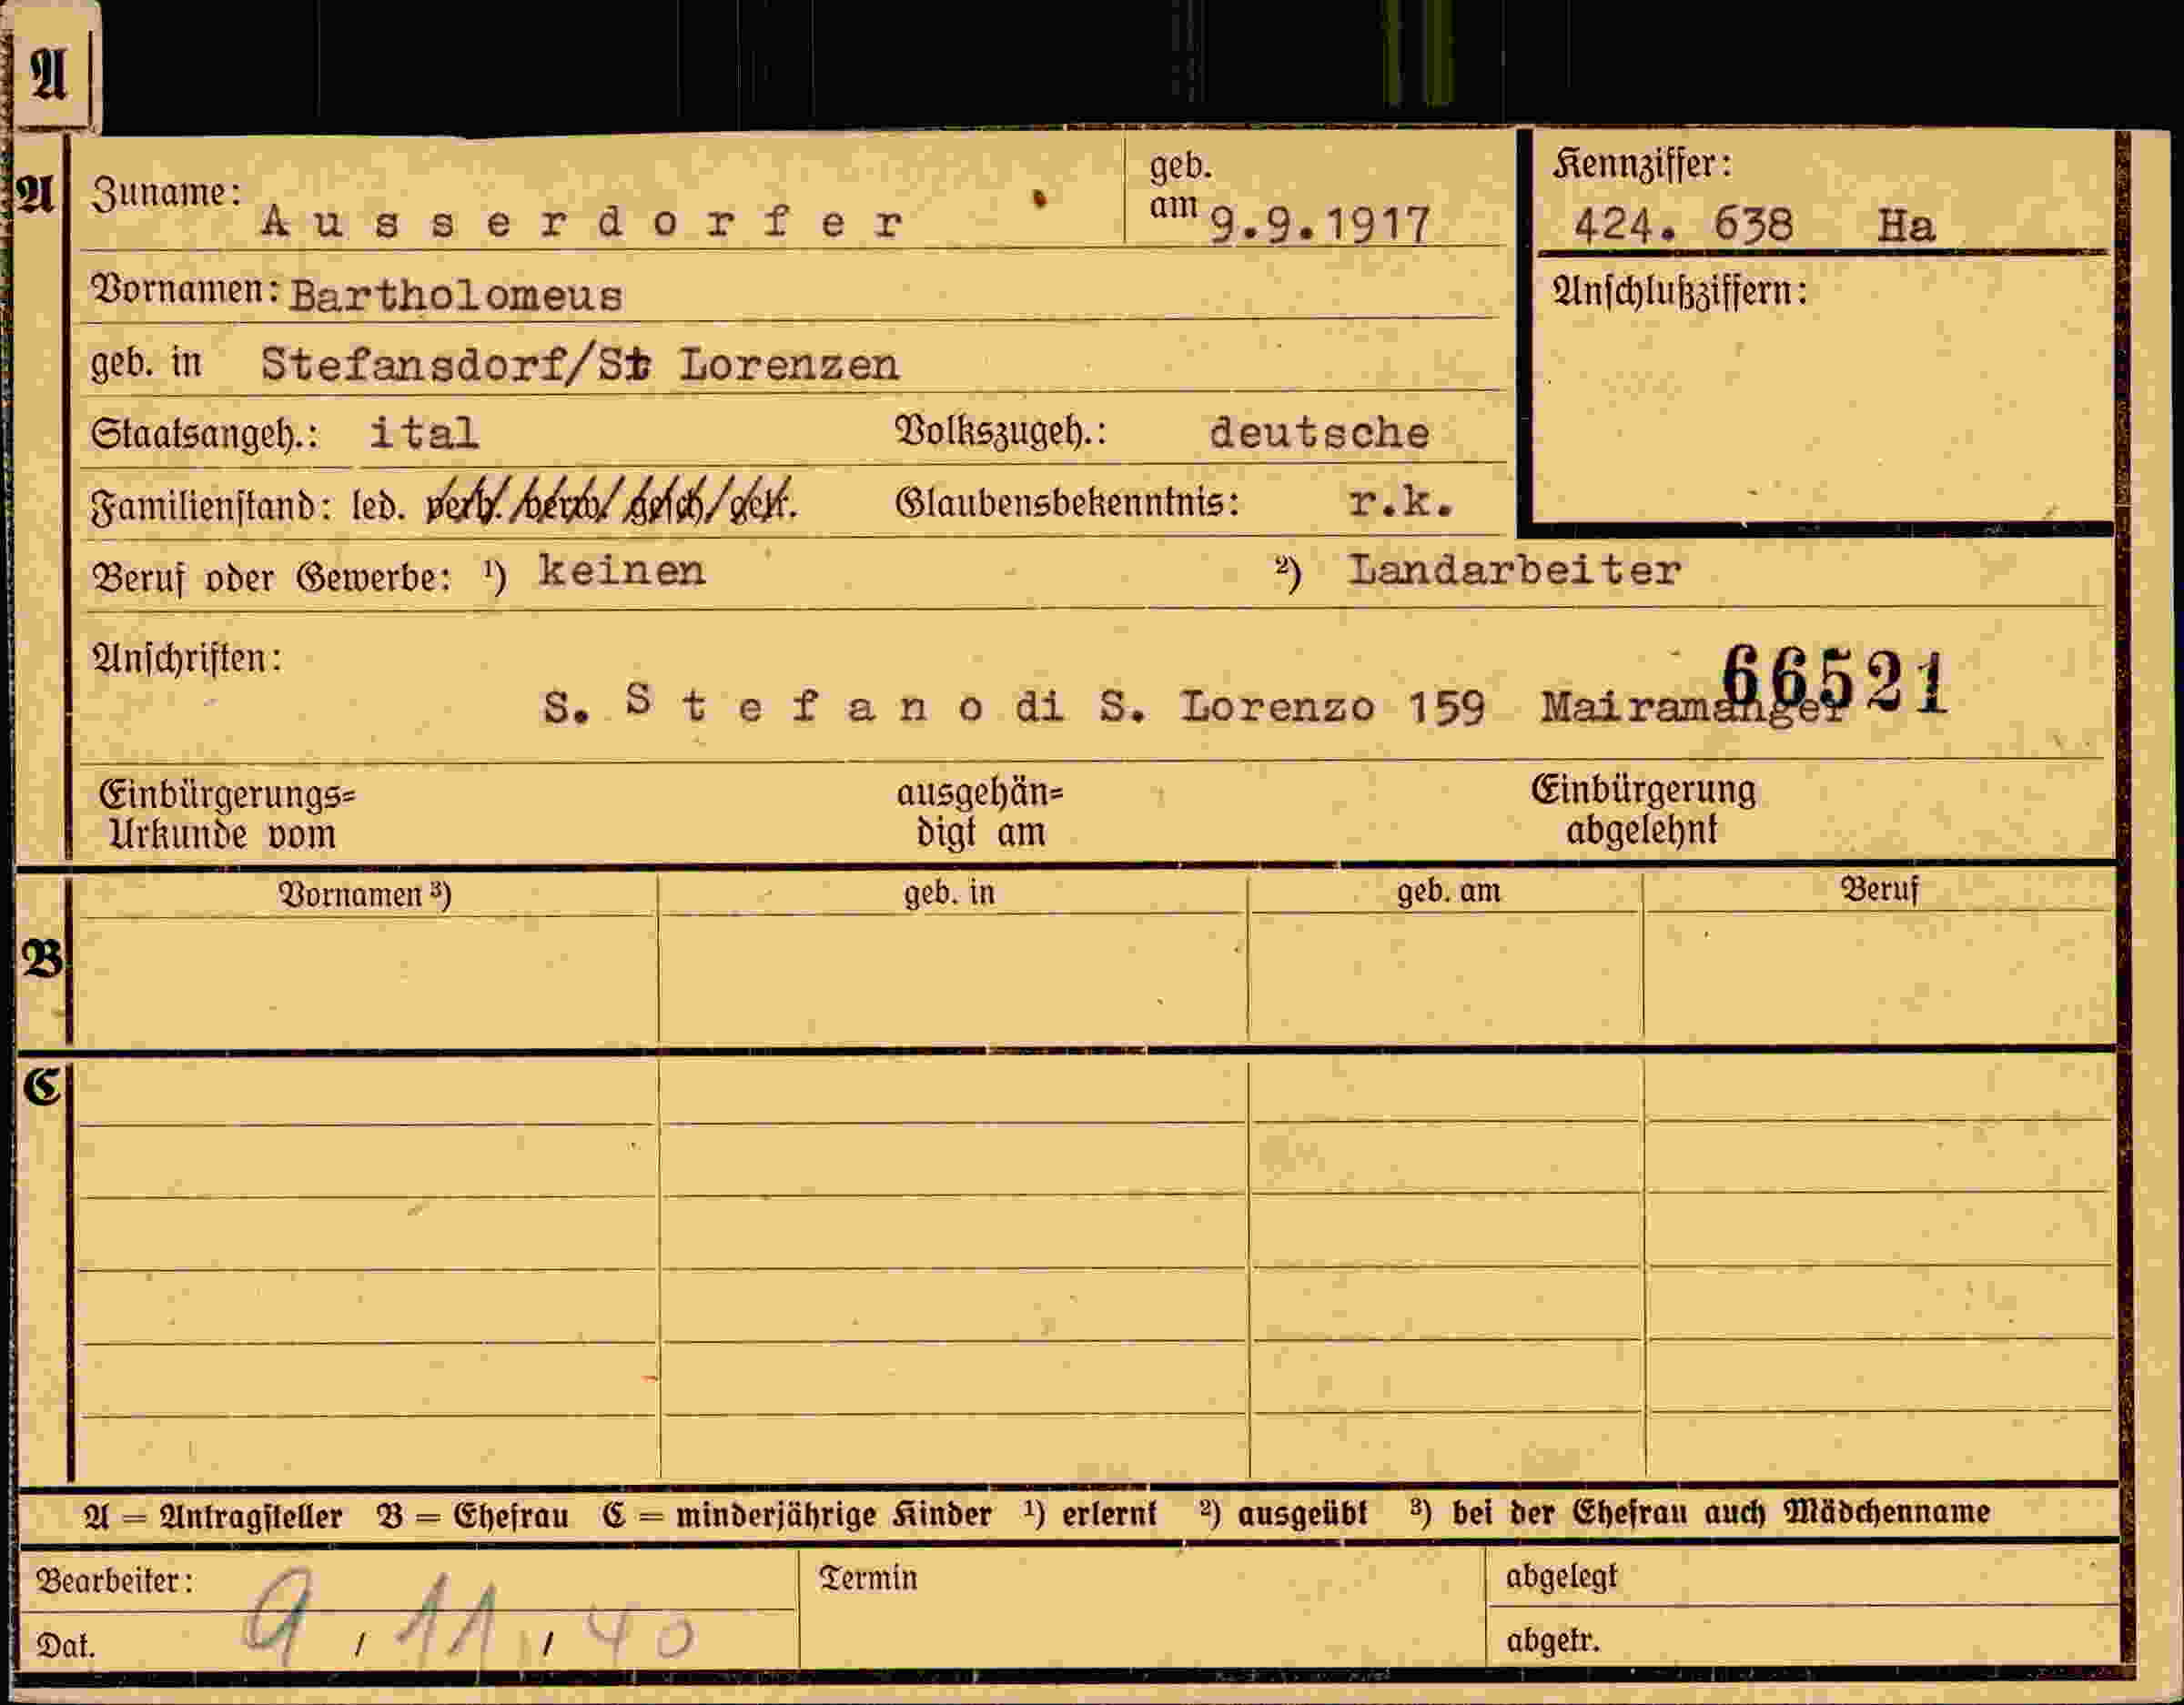 A
A
Zuname: Ausserdorfer geb. am 9.9.1917
Kennziffer: 424. 638 Ha
Vornamen: Bartholomeus
Anschlußziffern:
geb. in Stefansdorf/St Lorenzen
Staatsangeh.: ital Volkszugeh.: deutsche
Familienstand: led. verh./verw./gesch/getr. Glaubensbekenntnis: r.k.
Beruf oder Gewerbe: ¹) keinen ²) Landarbeiter
Anschriften: 66521
S. Stefano di S. Lorenzo 159 Mairamanger
Einbürgerungs= ausgehän= Einbürgerung
Urkunde vom digt am abgelehnt
Vornamen ³) geb. in geb. am Beruf
B
C
A = Antragsteller B = Ehefrau C = minderjährige Kinder ¹) erlernt ²) ausgeübt ³) bei der Ehefrau auch Mädchenname
Bearbeiter: Termin abgelegt
Dat. 9 / 11 / 40 abgetr.